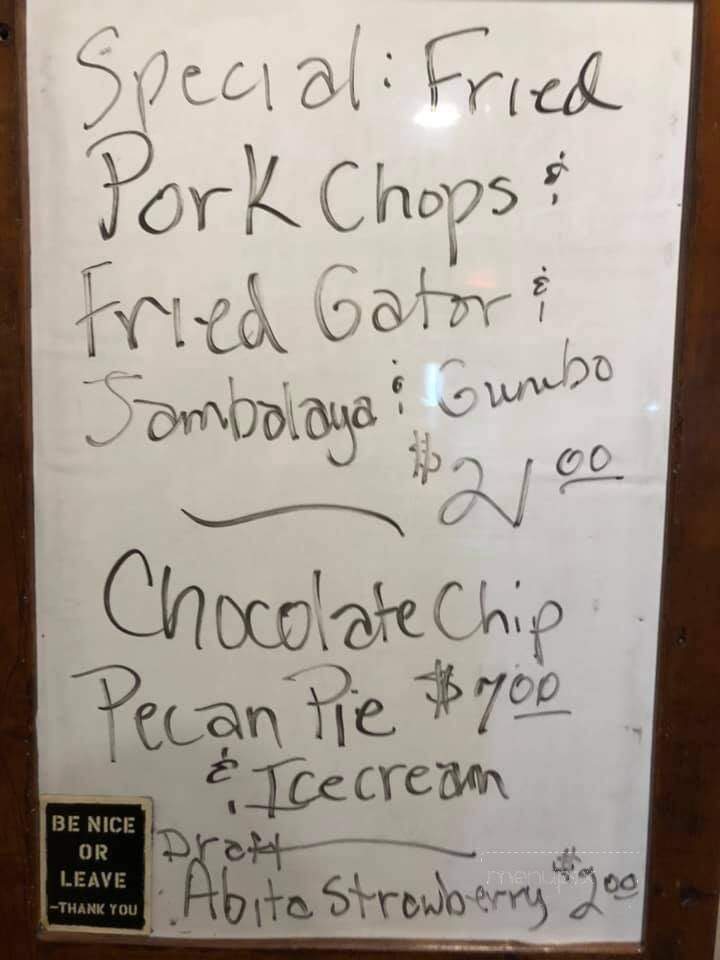 Special: Fried
Pork Chops &
Fried Gator &
Jambalaya & Gumbo
$21.00
Chocolate Chip
Pecan Pie $7.00
& Icecream
Draft
Abita Strawberry $2.00
BE NICE
OR
LEAVE
-THANK YOU
menupix